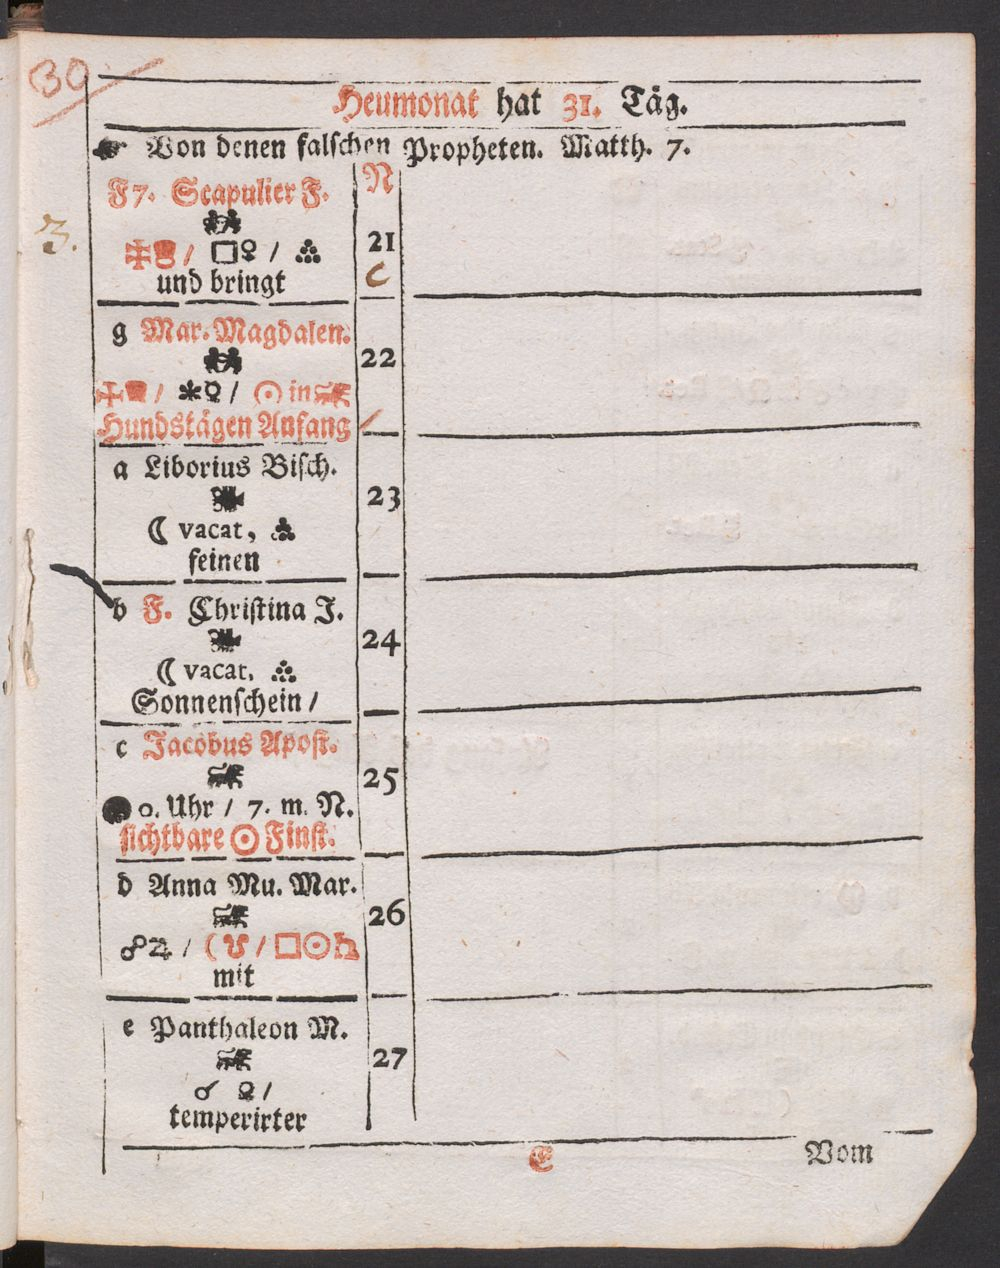 30
Heumonat hat 31. Täg.
☛ Von denen falschen Propheten. Matth. 7.
F 7. Scapulier F.
N
3.
21
/ □♀ / 
C
und bringt
g Mar. Magdalen.
22
/ ✱☿ / ☉ in
Hundstägen Anfang
a Liborius Bisch.
23
☾ vacat,
feinen
b F. Christina J.
24
☾ vacat.
Sonnenschein /
c Jacobus Apost.
25
● 0. Uhr / 7. m. N.
sichtbare ☉ Finst.
d Anna Mu. Mar.
26
☍♃ / ( ☋ / □☉♄
mit
e Panthaleon M.
27
☌ ♀ /
temperirter
E
Vom